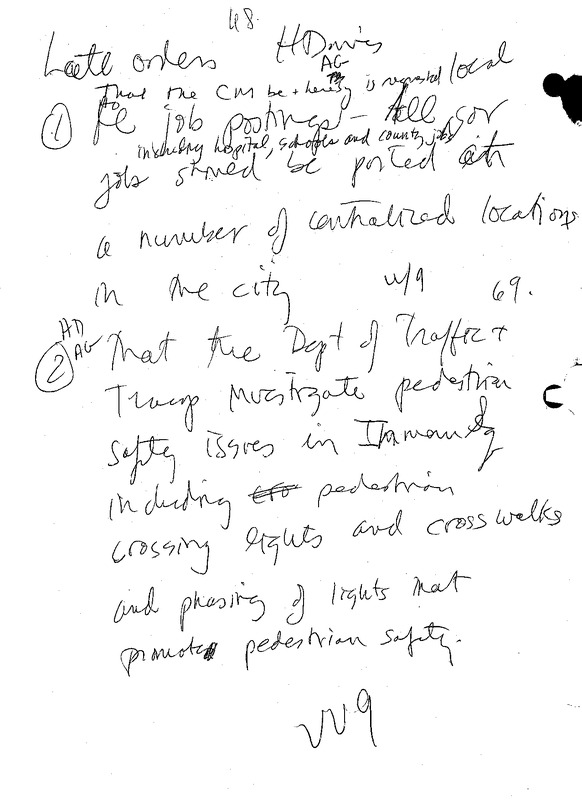 68.
Late orders H Davis
AG
That the CM be + hereby is requested local
① AD Re job postings - All gov
including hospital, schools and county jobs
jobs should be posted at
a number of centralized locations
in the city VV9 69.
AD
② AG That the Dept of Traffic +
Transp investigate pedestrian
safety issues in Inman Sq
including pedestrian
crossing lights and crosswalks
and phasing of lights that
promote pedestrian safety.
VV9